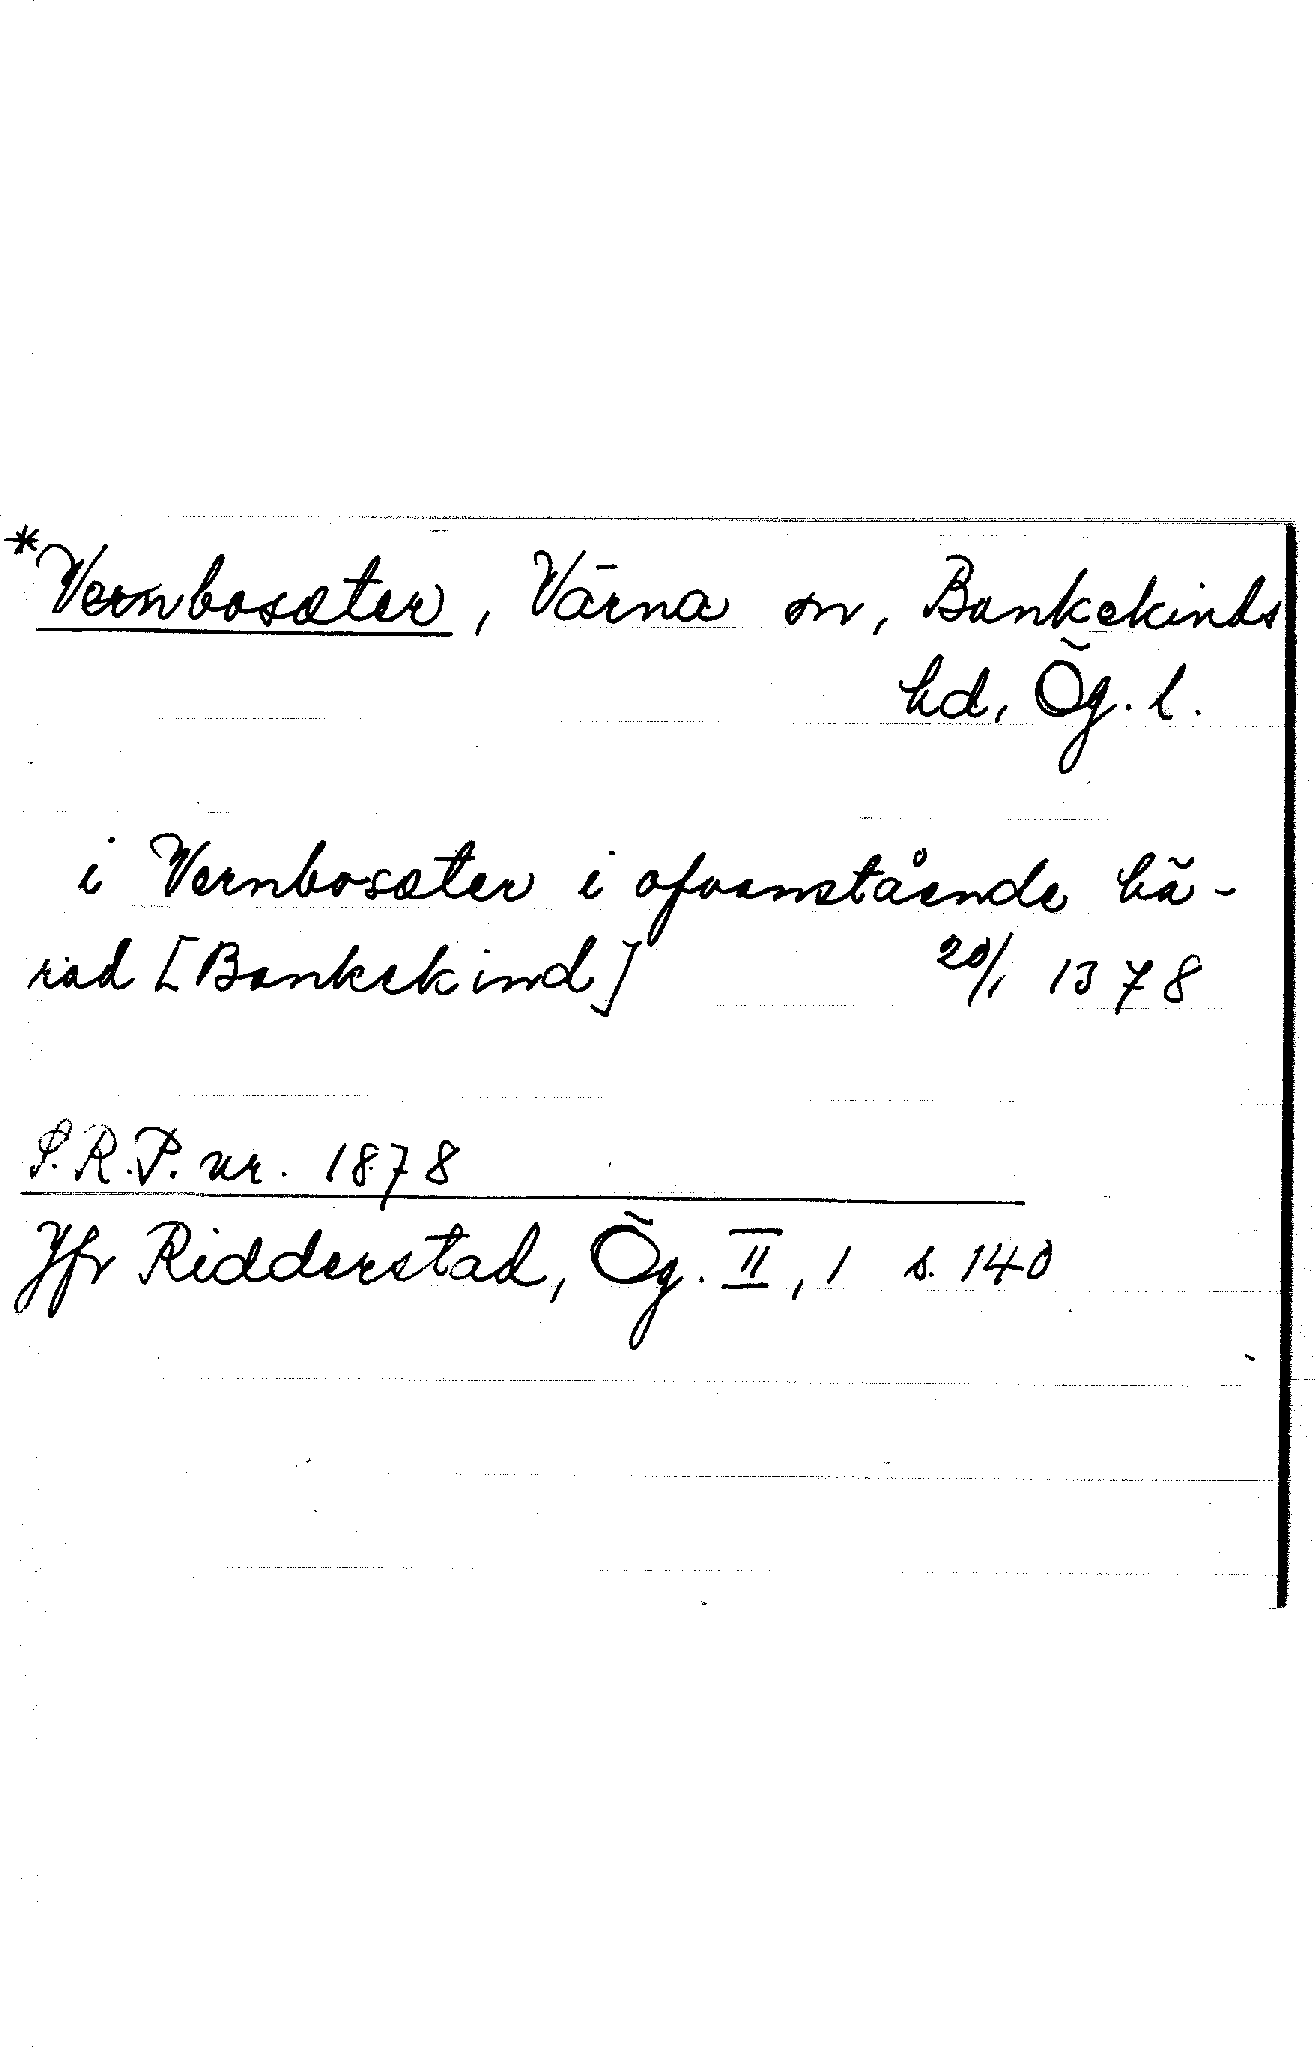 *Vernbosæter, Värna sn, Bankekinds
hd, Ög. l.
i Vernbosæter i ofvanstående hä-
rad [Bankekind] 20/1 1378
S.R.P. nr. 1878
Jfr Ridderstad, Ög. II, 1 s. 140